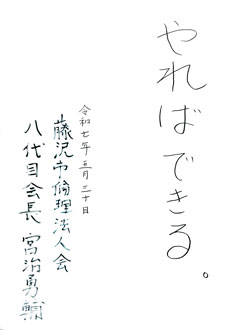 やればできる。
令和七年三月三十日
藤沢市倫理法人会
八代目会長 宮治勇輔